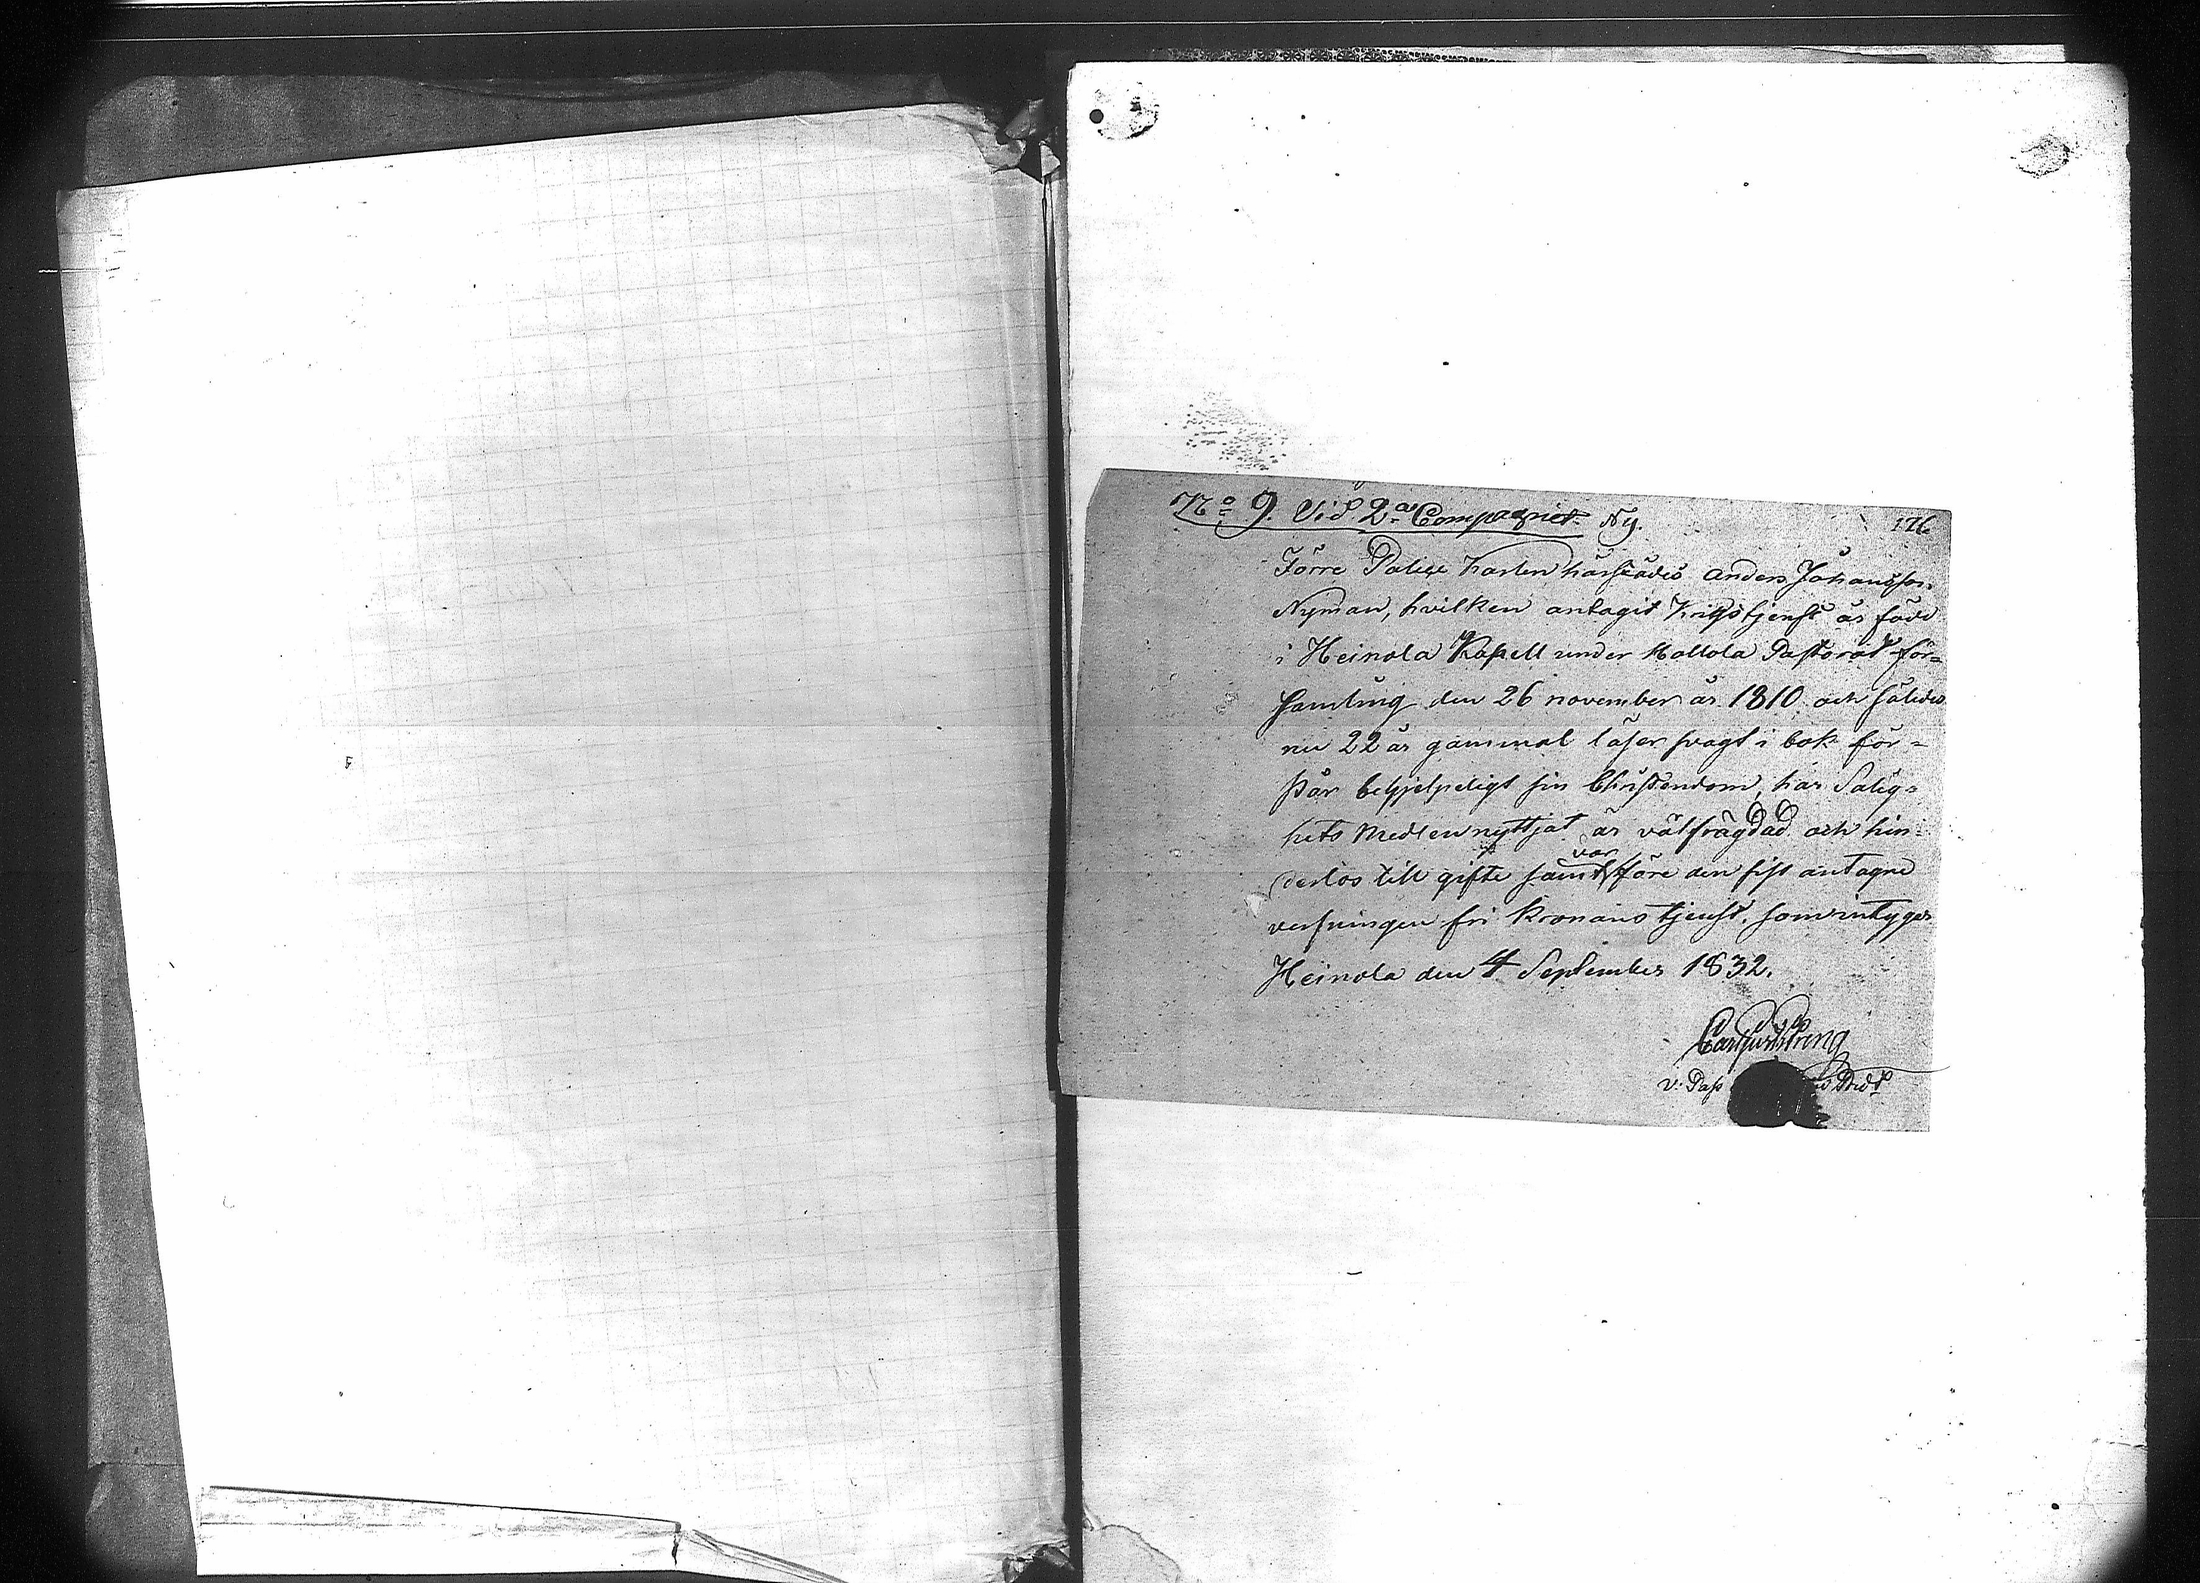 No 9. Vid 2a Compagniet. Ny. 126
Förre Police Karlen härstädes Anders Johansson
Nyman, hvilken antagit Krigstjenst är född
i Heinola Kapell under Hollola Pastorat för=
samling den 26 november år 1810 och således
nu 22 år gammal läser svagt i bok för=
står behjelpeligt sin Christendom, har Salig=
hets Medlen nyttjat är välfrägdad och hin=
derlös till gifte samt var före den sist antagne
verfningen fri Kronans tjenst, som intygar
Heinola den 4 September 1832.
v. Past